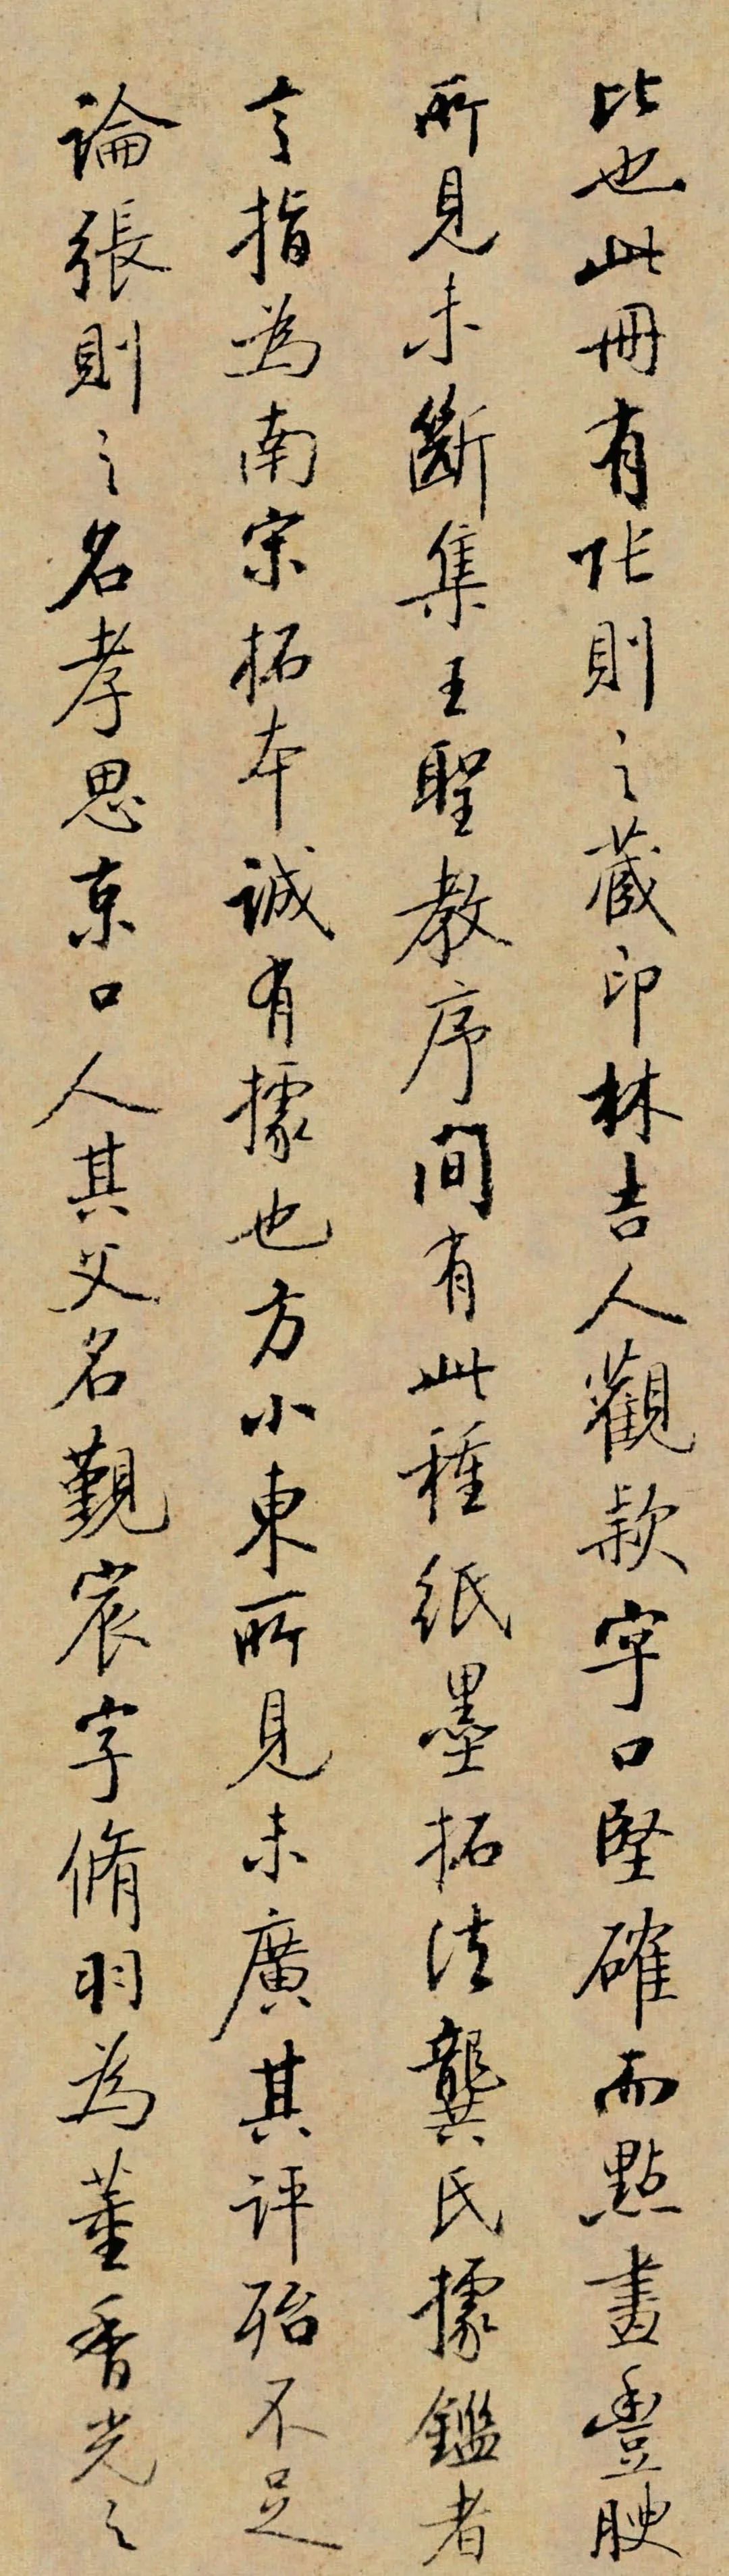 比也此冊有張則之藏印林吉人觀款字口堅確而點畫豐腴
所見未斷集王聖教序間有此種紙墨拓法龔氏據鑑者
言指為南宋拓本誠有據也方小東所見未廣其評殆不足
論張則之名孝思京口人其父名覲宸字脩羽為董香光之